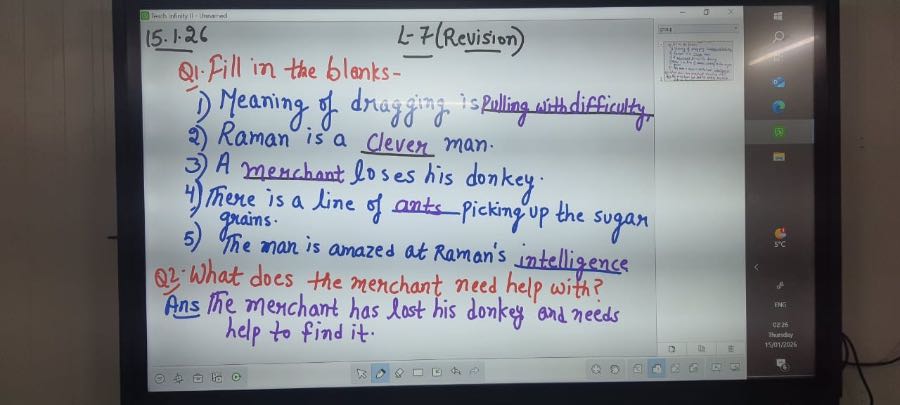 Teach Infinity II - Unnamed
15.1.26
L-7 (Revision)
Q1. Fill in the blanks-
1) Meaning of dragging is Pulling with difficulty.
2) Raman is a clever man.
3) A merchant loses his donkey.
4) There is a line of ants picking up the sugar
grains.
5) The man is amazed at Raman's intelligence
Q2. What does the merchant need help with?
Ans The merchant has lost his donkey and needs
help to find it.
5°C
ENG
02:26
Thursday
15/01/2026